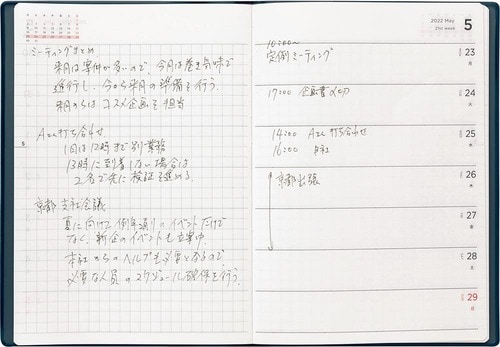 ミーティングまとめ
来月は案件が多いので、今月は巻き気味で
進行し、今から来月の準備を行う。
来月からは コスメ企画を担当
A社打ち合わせ
1回は12時まで別業務
13時に到着しない場合は
2名で先に検証を進める。
京都支社会議
夏に向けて例年通りのイベントだけで
なく、新企のイベントも立案中。
本社からのヘルプも必要となるので、
必要な人員のスケジュール確保を行う。
2022 May
21st week
5
10:00〜
定例ミーティング
23
月
17:00 企画書〆切
24
火
14:00 A社打ち合わせ
16:00 B社
25
水
京都出張
26
木
27
金
28
土
29
日